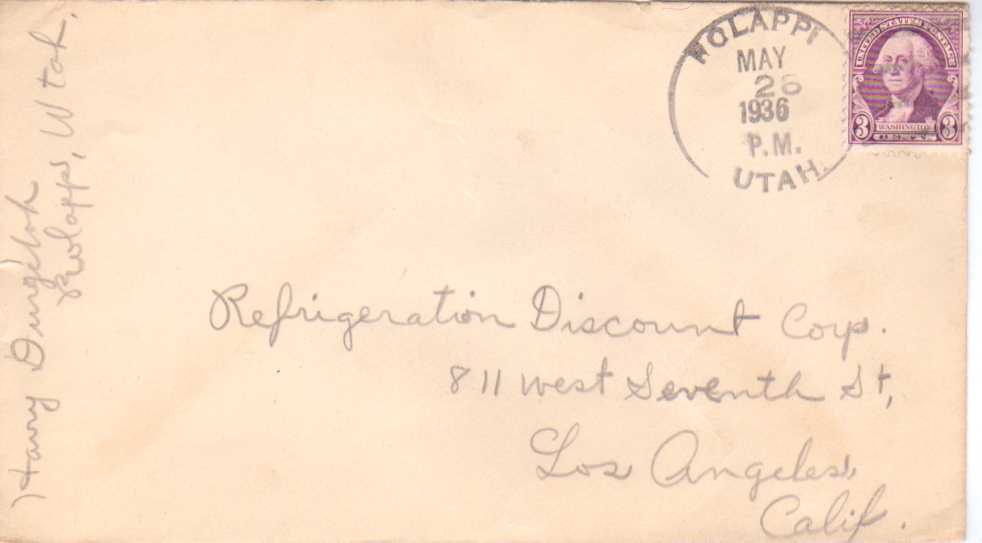 ROLAPP
MAY
26
1936
P.M.
UTAH
UNITED STATES POSTAGE
3 WASHINGTON 3
CENTS
Harry
Rolapp, Utah.
Refrigeration Discount Corp.
811 West Seventh St,
Los Angeles
Calif.